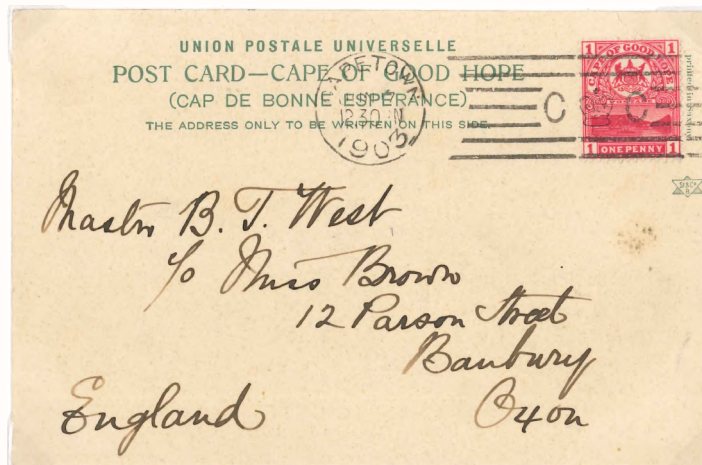 UNION POSTALE UNIVERSELLE
POST CARD—CAPE OF GOOD HOPE
(CAP DE BONNE ESPÉRANCE)
THE ADDRESS ONLY TO BE WRITTEN ON THIS SIDE.
CAPETOWN
1230
1903
C C
1 CAPE OF GOOD HOPE 1
1 ONE PENNY 1
Master B. T. West
c/o Miss Brown
12 Parson Street
Banbury
England Oxon